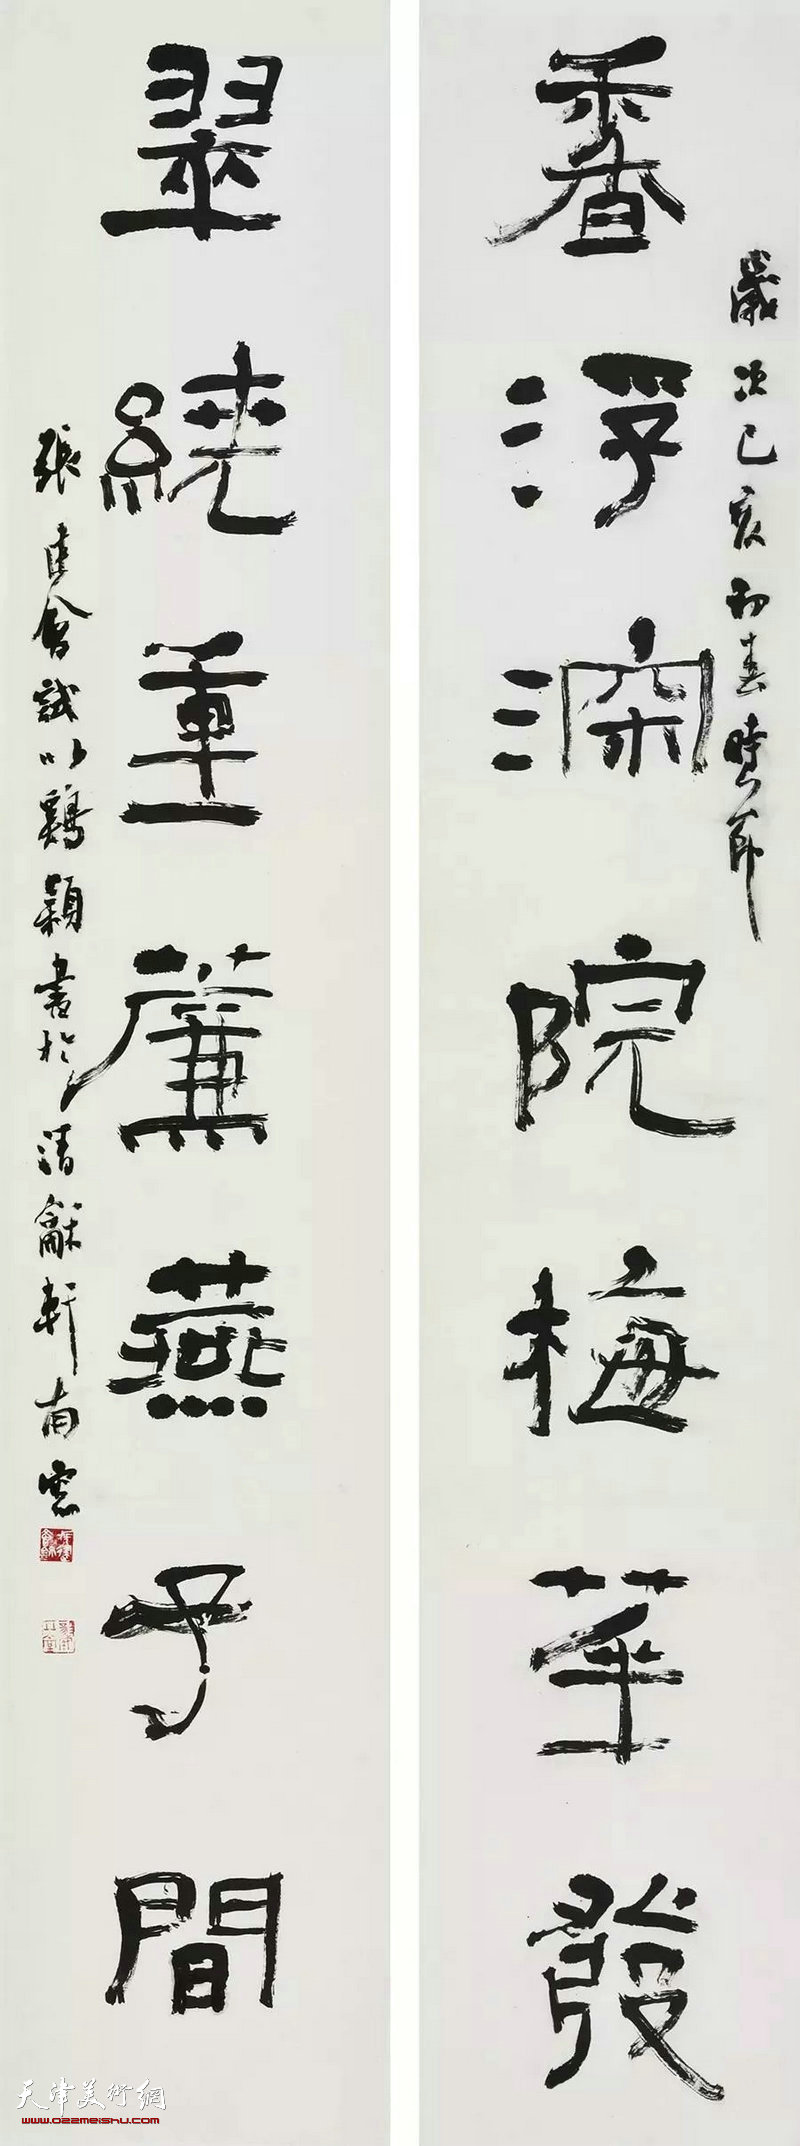 香浮深院梅華發
歲次己亥初春時節
翠繞重簾燕子間
張建會試以鷄穎書於清龢軒南窓
天津美術網
www.022meishu.com